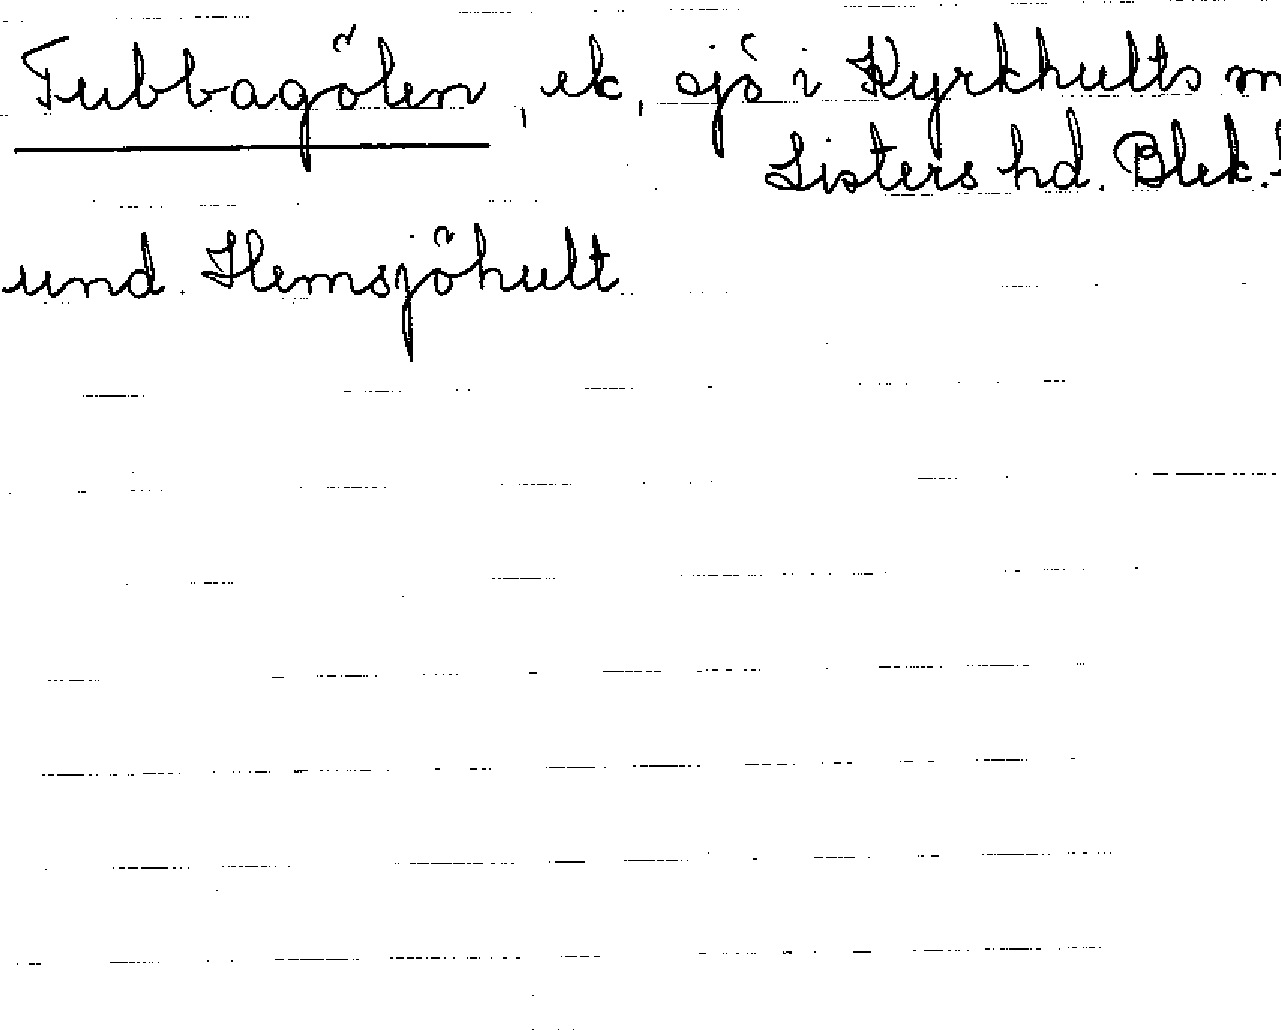 Tubbagölen, ek, sjö i Kyrkhults
Listers hd. Blek.
und. Hemsjöhult